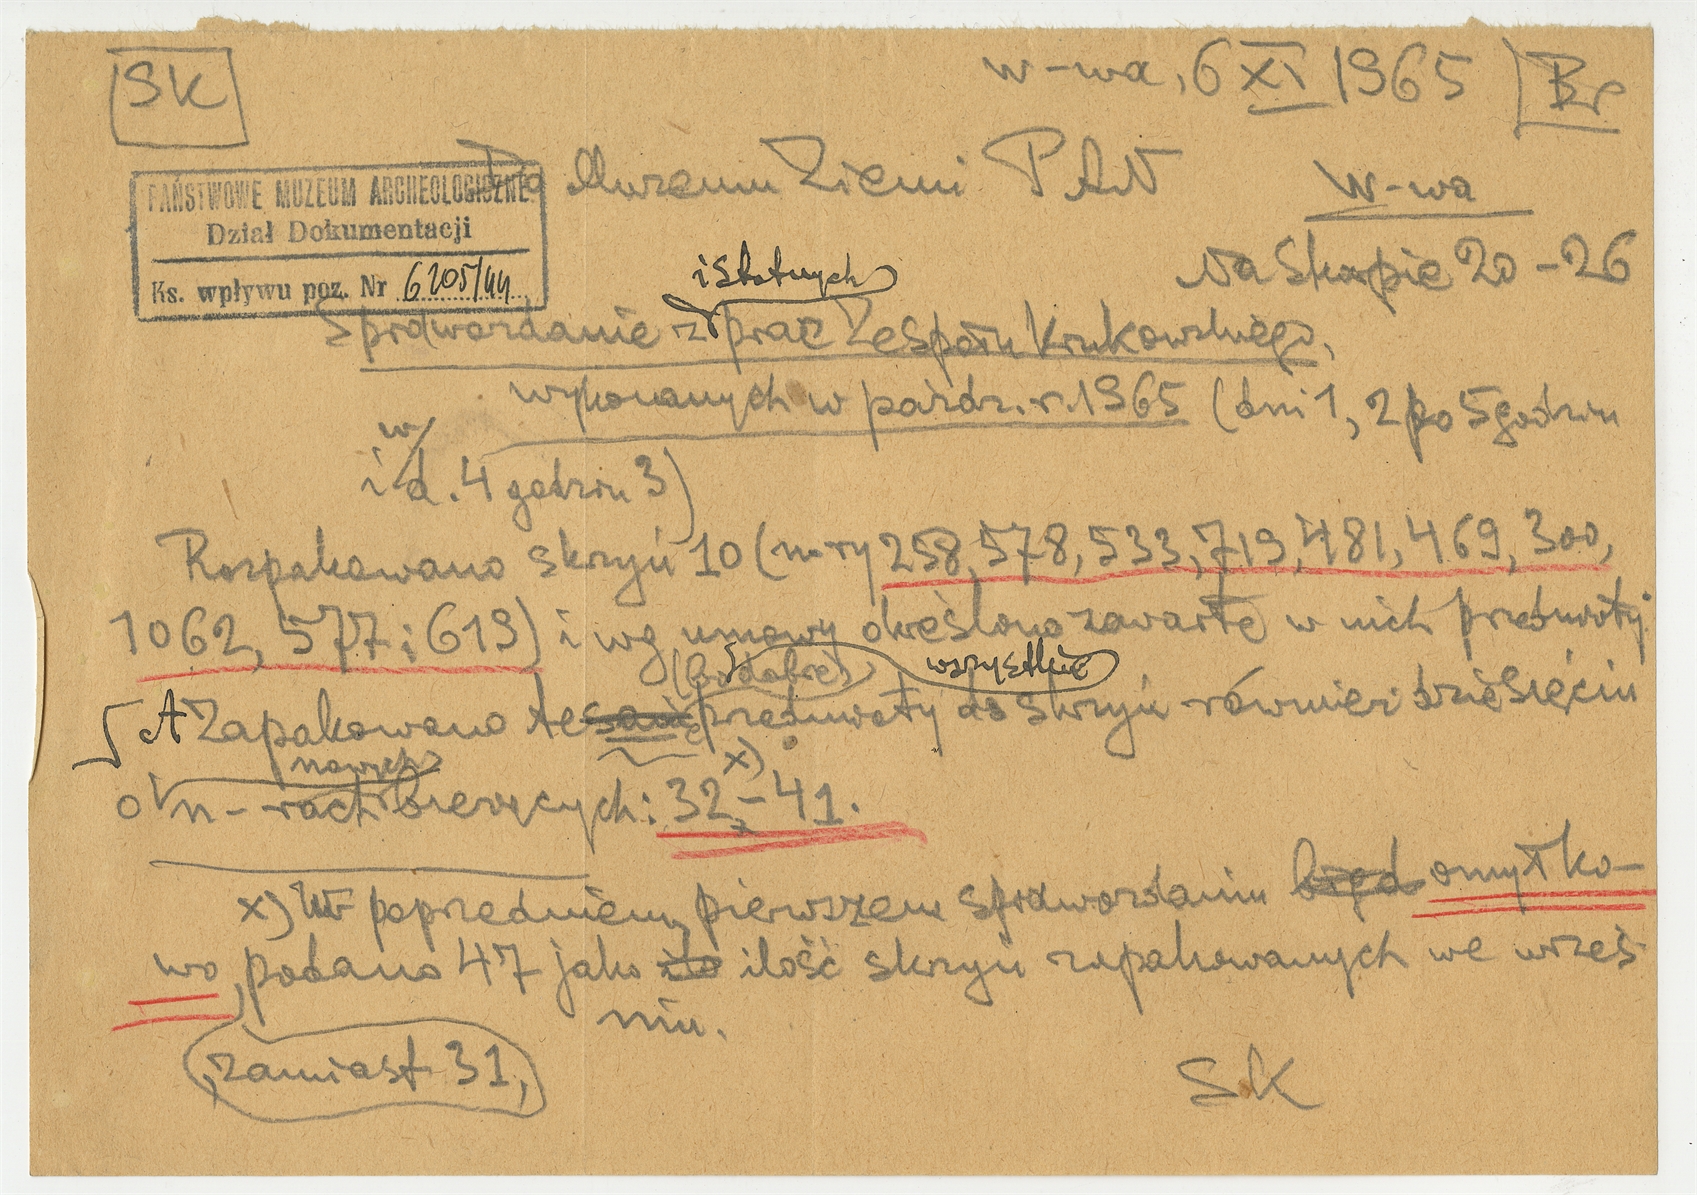 SK
W-wa, 6 XI 1965
Br
Do Muzeum Ziemi PAN
W-wa
PAŃSTWOWE MUZEUM ARCHEOLOGICZNE
Dział Dokumentacji
Ks. wpływu poz. Nr 6205/44
Na Skarpie 20-26
istotnych
Sprawozdanie z prac Zespołu Krukowskiego,
wykonanych w paźdz. r. 1965 (dni 1, 2 po 5 godzin
w
i d. 4 godzin 3)
Rozpakowano skrzyń 10 (n-ry 258, 578, 533, 719, 481, 469, 300,
1062, 577 i 619) i wg umowy określono zawarte w nich przedmioty.
wszystkie
A Zapakowano te same przedmioty do skrzyń również dziesięciu
nowych
o n-rach bieżących: 32 - 41. x)
x) W poprzedniem, pierwszem sprawozdaniu błęd omyłko-
wo podano 47 jako ilość skrzyń zapakowanych we wrześ-
niu.
, zamiast 31,
SK